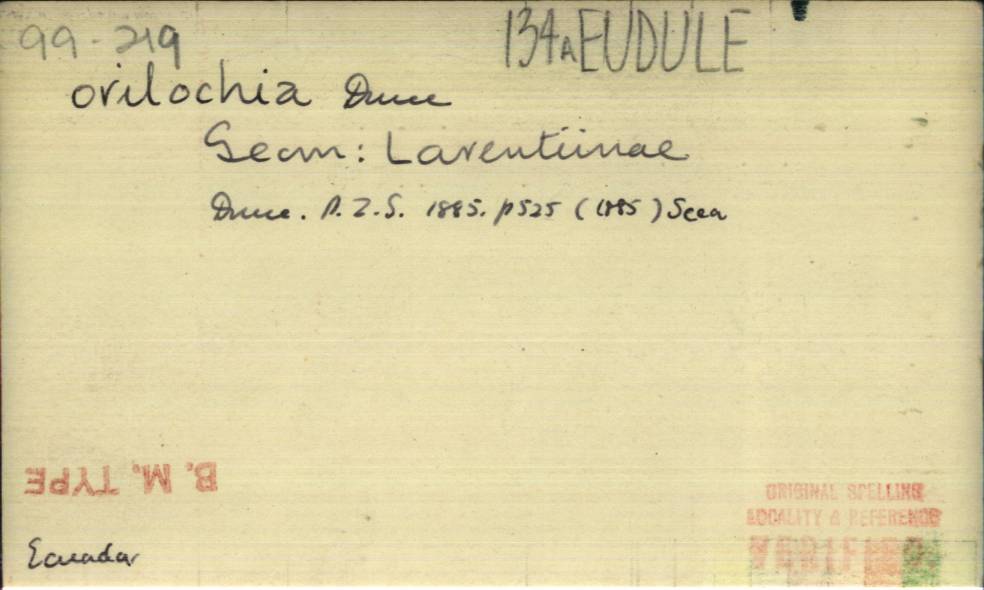 99-219
134A EUDULE
orilochia Druce
Geom: Larentiinae
Druce. P.Z.S. 1885. p525 (1885) Scea
B. M. TYPE
ORIGINAL SPELLING
LOCALITY & REFERENCE
VERIFIED.
Ecuador